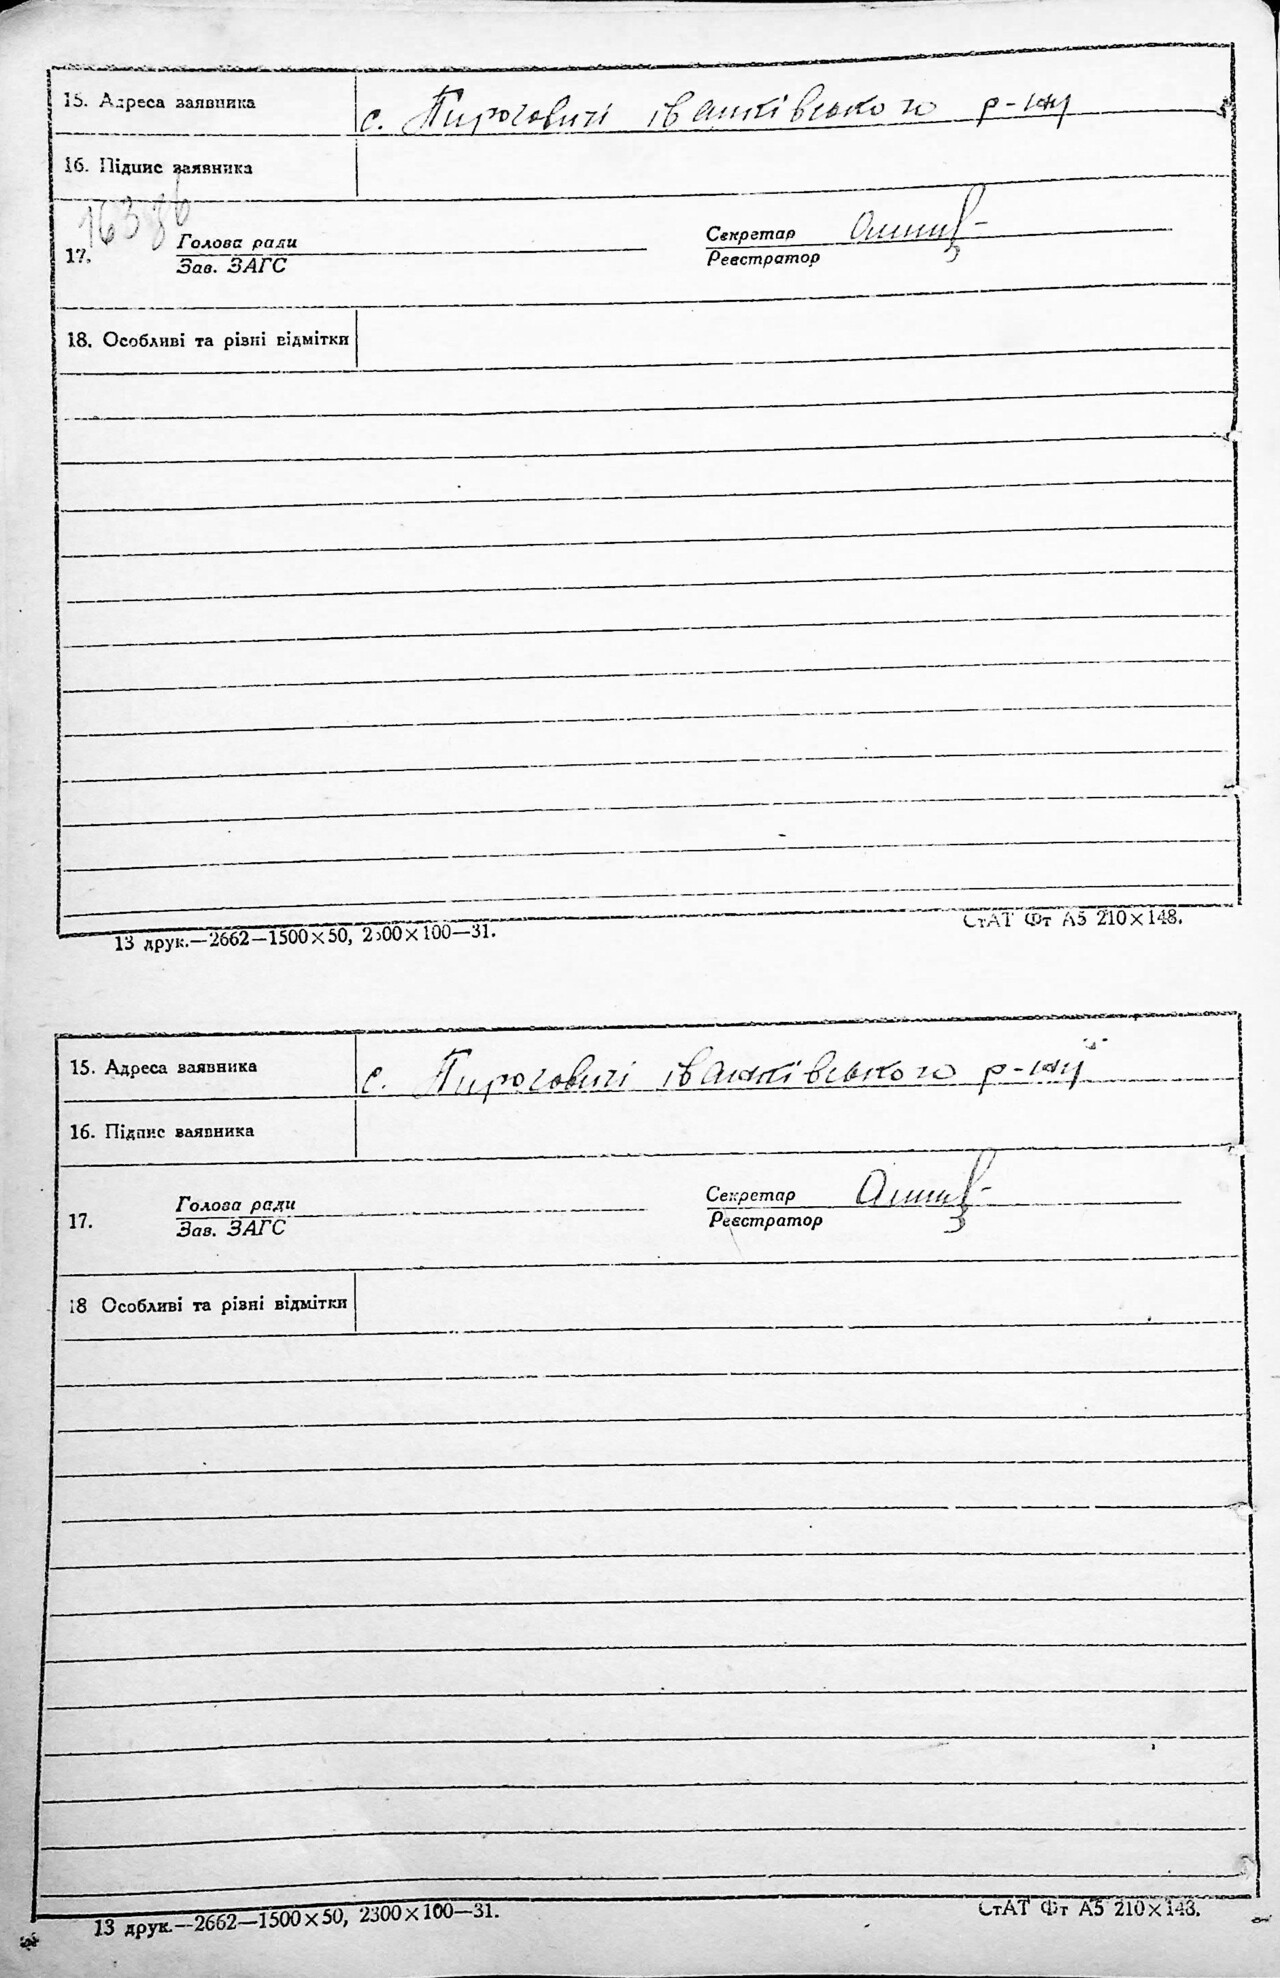 15. Адреса заявника с. Пироговичі іванківського р-ну
16. Підпис заявника
163зв
17. Голова ради Секретар
Зав. ЗАГС Реєстратор
18. Особливі та різні відмітки
13 друк.—2662—1500×50, 2300×100—31. СтАТ Фт А5 210×148.
15. Адреса заявника с. Пироговичі іванківського р-ну
16. Підпис заявника
17. Голова ради Секретар
Зав. ЗАГС Реєстратор
18 Особливі та різні відмітки
13 друк.—2662—1500×50, 2300×100—31. СтАТ Фт А5 210×148.